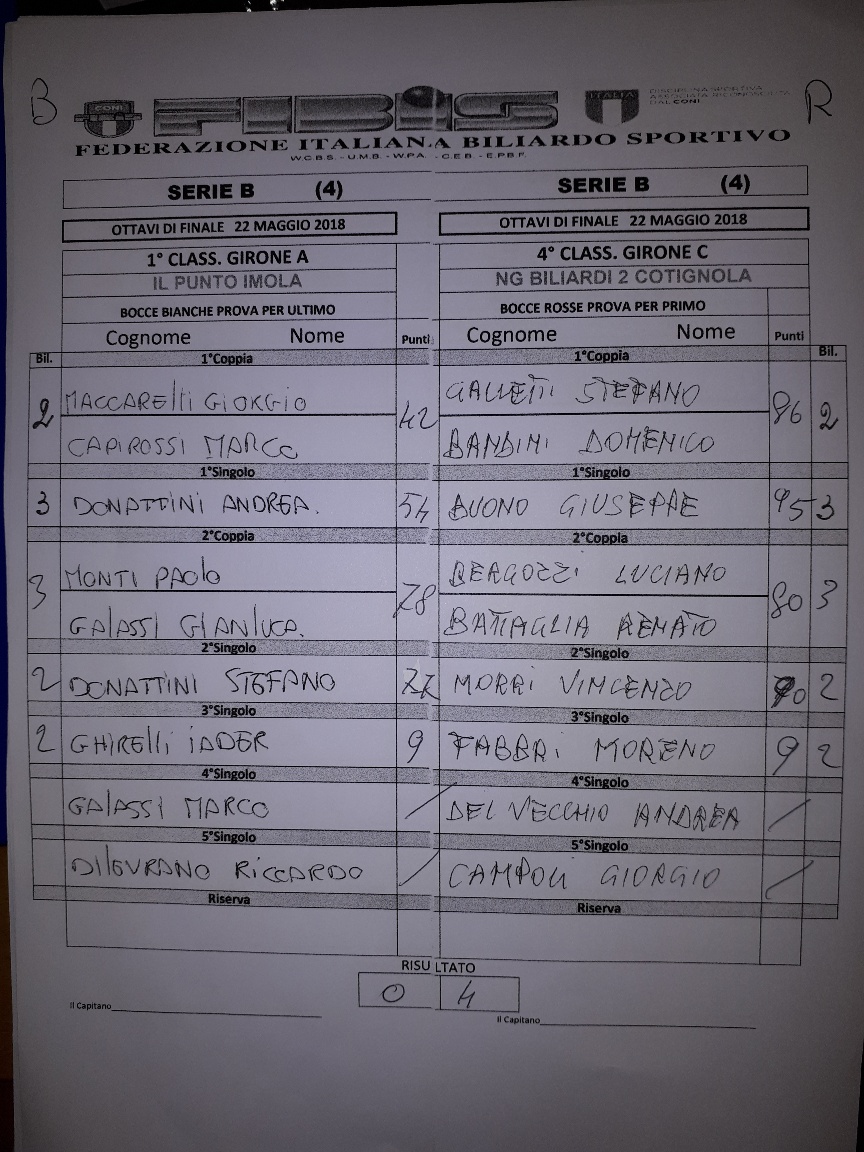 B R
CONI FIBiS ITALIA DISCIPLINA SPORTIVA
ASSOCIATA RICONOSCIUTA
DAL CONI
FEDERAZIONE ITALIANA BILIARDO SPORTIVO
W.C.B.S. - U.M.B. - W.P.A. - C.E.B. - E.P.B.F.
SERIE B (4) SERIE B (4)
OTTAVI DI FINALE 22 MAGGIO 2018 OTTAVI DI FINALE 22 MAGGIO 2018
1° CLASS. GIRONE A 4° CLASS. GIRONE C
IL PUNTO IMOLA NG BILIARDI 2 COTIGNOLA
BOCCE BIANCHE PROVA PER ULTIMO BOCCE ROSSE PROVA PER PRIMO
Cognome Nome Punti Cognome Nome Punti
Bil. 1°Coppia 1°Coppia Bil.
2 MACCARElli GIORGIO 42 GALLETTI STEFANO 86 2
CAPIROSSI MARCO BANDINI DOMENICO
1°Singolo 1°Singolo
3 DONATTINI ANDREA. 54 BUONO GIUSEPPE 95 3
2°Coppia 2°Coppia
3 MONTI PAOLO 78 BERGOZZI LUCIANO 80 3
GALASSI GIANLUCA. BATTAGLIA RENATO
2°Singolo 2°Singolo
2 DONATTINI STEFANO MORRI VINCENZO 2
3°Singolo 3°Singolo
2 GHIRElli iADER 9 FABBRI MORENO 9 2
4°Singolo 4°Singolo
GALASSI MARCO / DEL VECCHIO ANDREA /
5°Singolo 5°Singolo
RICCARDO / CAMPOLI GIORGIO /
Riserva Riserva
RISULTATO
0 4
Il Capitano Il Capitano